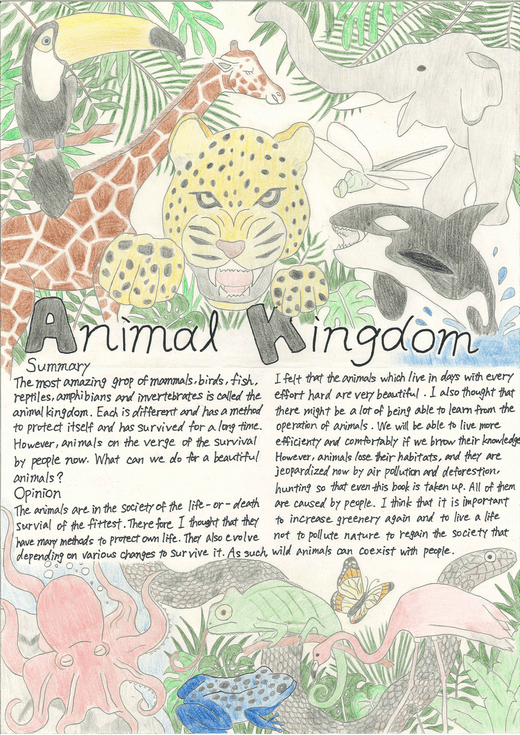 Animal Kingdom
Summary
The most amazing grop of mammals, birds, fish,
reptiles, amphibians and invertebrates is called the
animal kingdom. Each is different and has a method
to protect itself and has survived for a long time.
However, animals on the verge of the survival
by people now. What can we do for a beautiful
animals?
Opinion
The animals are in the society of the life-or-death
survial of the fittest. Therefore, I thought that they
have many methods to protect own life. They also evolve
depending on various changes to survive it. As such,
I felt that the animals which live in days with every
effort hard are very beautiful. I also thought that
there might be a lot of being able to learn from the
operation of animals. We will be able to live more
efficienty and comfortably if we brrow their knowledge
However, animals lose their habitats, and they are
jeopardized now by air pollution and deforestion,
hunting so that even this book is taken up. All of them
are caused by people. I think that it is important
to increase greenery again and to live a life
not to pollute nature to regain the society that
wild animals can coexist with people.